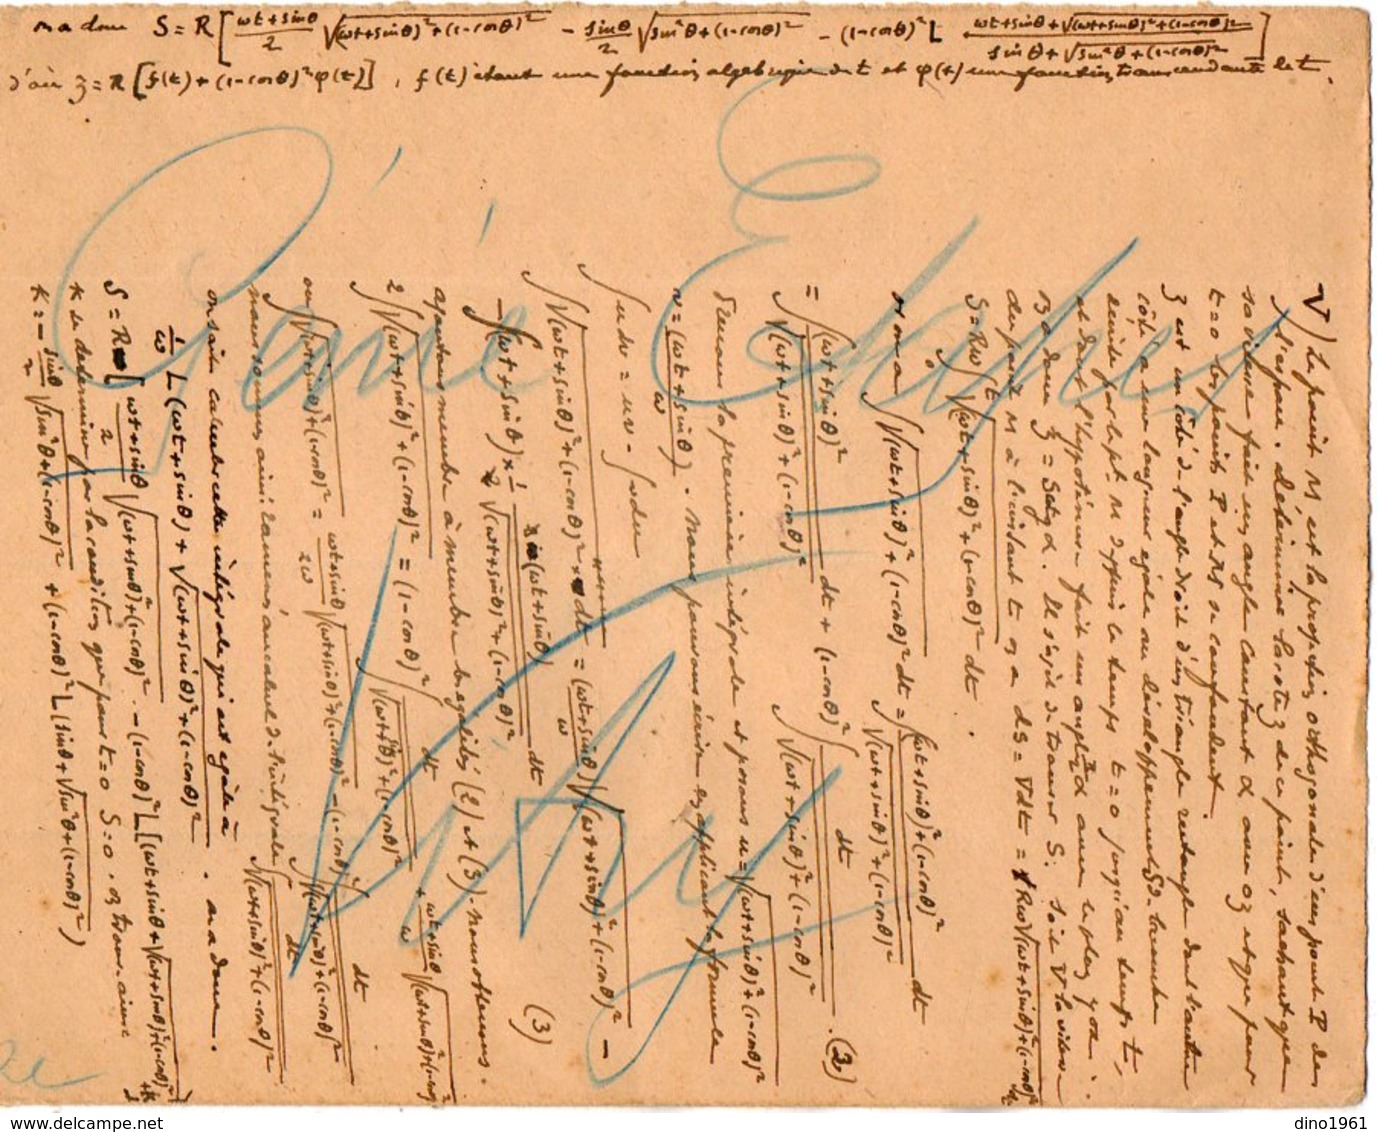 on a donc S = R [ (ωt+sinθ)/2 √((ωt+sinθ)²+(1-cosθ)²) - sinθ/2 √(sin²θ+(1-cosθ)²) - (1-cosθ)² L (ωt+sinθ+√((ωt+sinθ)²+(1-cosθ)²))/(sinθ+√(sin²θ+(1-cosθ)²)) ]
d'où z = R [f(t) + (1-cosθ)² φ(t)], f(t) étant une fonction algébrique de t et φ(t) une fonction transcendante de t.
V) Le point M est la projection orthogonale d'un point P de
l'espace. Déterminer la cote z de ce point, sachant que
sa vitesse fait un angle constant α avec oz et que pour
t=0 les points P et M se confondent.
z est un côté de l'angle droit d'un triangle rectangle dont l'autre
côté a une longueur égale au développement S de
décrite par le pt M depuis le temps t=0 jusqu'au temps t,
et dont l'hypoténuse fait un angle avec
on a donc z = S cotg α. Il s'agit de trouver S. soit V la vitesse
du point M à l'instant t on a dS = Vdt = Rω√((ωt+sinθ)²+(1-cosθ)²)
S = Rω ∫₀ᵗ √((ωt+sinθ)²+(1-cosθ)²) dt.
or on a ∫√((ωt+sinθ)²+(1-cosθ)²) dt = ∫ ((ωt+sinθ)²+(1-cosθ)²)/√((ωt+sinθ)²+(1-cosθ)²) dt
= ∫ (ωt+sinθ)²/√((ωt+sinθ)²+(1-cosθ)²) dt + (1-cosθ)² ∫ dt/√((ωt+sinθ)²+(1-cosθ)²) . (2)
Prenons la première intégrale et posons u = √((ωt+sinθ)²+(1-cosθ)²)
v = (ωt+sinθ)/ω . nous pouvons écrire en appliquant la formule
∫udv = uv - ∫vdu
∫√((ωt+sinθ)²+(1-cosθ)²) dt = (ωt+sinθ)/ω √((ωt+sinθ)²+(1-cosθ)²) -
- ∫(ωt+sinθ) × 1/2 (ωt+sinθ)/√((ωt+sinθ)²+(1-cosθ)²) dt (3)
ajoutons membre à membre les égalités (2) et (3). nous obtenons.
2∫√((ωt+sinθ)²+(1-cosθ)²) = (1-cosθ)² ∫ dt/√((ωt+sinθ)²+(1-cosθ)²) + (ωt+sinθ)/ω √((ωt+sinθ)²+(1-cosθ)²)
ou ∫√((ωt+sinθ)²+(1-cosθ)²) = (ωt+sinθ)/2ω √((ωt+sinθ)²+(1-cosθ)²) - (1-cosθ)² ∫ dt/√((ωt+sinθ)²+(1-cosθ)²)
nous sommes ainsi ramenés au calcul de l'intégrale ∫ dt/√((ωt+sinθ)²+(1-cosθ)²)
on sait calculer cette intégrale qui est égale à
1/ω L (ωt+sinθ) + √((ωt+sinθ)²+(1-cosθ)²) . on a donc.
S = R [ (ωt+sinθ)/2 √((ωt+sinθ)²+(1-cosθ)²) - (1-cosθ)² L [(ωt+sinθ+√((ωt+sinθ)²+(1-cosθ)²)] + K ]
K se détermine par la condition que pour t=0 S=0. on trouve ainsi
K = - sinθ/2 √(sin²θ+(1-cosθ)²) + (1-cosθ)² L (sinθ+√(sin²θ+(1-cosθ)²))
Génie
dino1961